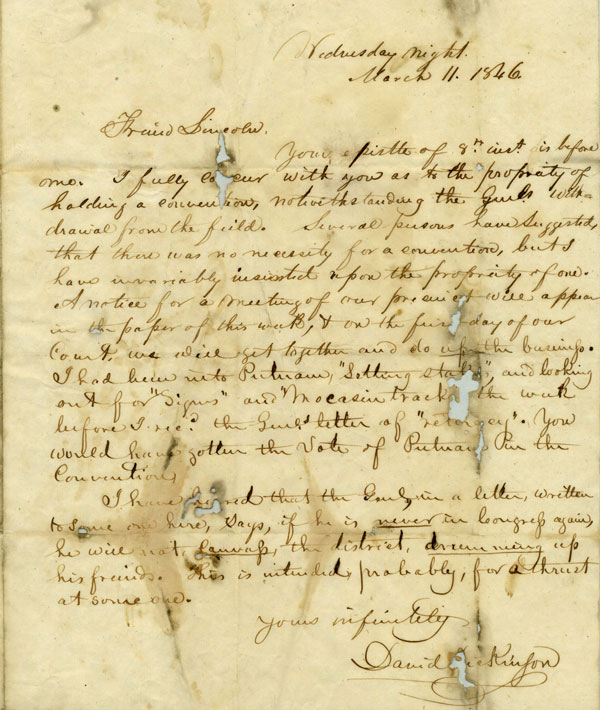 Wednesday night.
March 11. 1846.
Friend Lincoln.
Your epistle of 8th inst. is before
me. I fully concur with you as to the propriety of
holding a convention, notwithstanding the Genl's with-
drawal from the field. Several persons have suggested,
that there was no necessity for a convention, but I
have invariably insisted upon the propriety of one.
A notice for a meeting of our precinct will appear
in the paper of this week, & on the first day of our
Court, we will get together and do up the business.
I had been into Putnam, "Setting stakes", and looking
out for "Signs" and "Mocasin tracks" the week
before I recd. the Genl's letter of . You
would have gotten the Vote of Putnam in the
Convention,
I have heard that the Genl, in a letter, written
to some one here, says, if he is never in Congress again,
he will not, canvass, the district, drumming up
his freinds. This is intended, probably, for a thrust
at some one.
Yours infinitely
David Dickinson